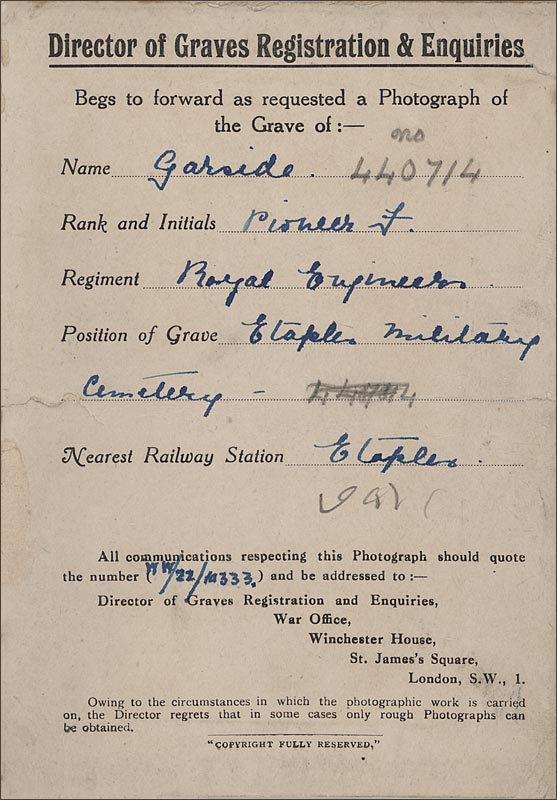 Director of Graves Registration & Enquiries
Begs to forward as requested a Photograph of
the Grave of :—
no
Name Garside. 440714
Rank and Initials Pioneer F.
Regiment Royal Engineers.
Position of Grave Etaples Military
Cemetery –
Nearest Railway Station Etaples.
All communications respecting this Photograph should quote
the number ( /22/ ) and be addressed to :—
Director of Graves Registration and Enquiries,
War Office,
Winchester House,
St. James's Square,
London, S.W., 1.
Owing to the circumstances in which the photographic work is carried
on, the Director regrets that in some cases only rough Photographs can
be obtained.
"COPYRIGHT FULLY RESERVED,"